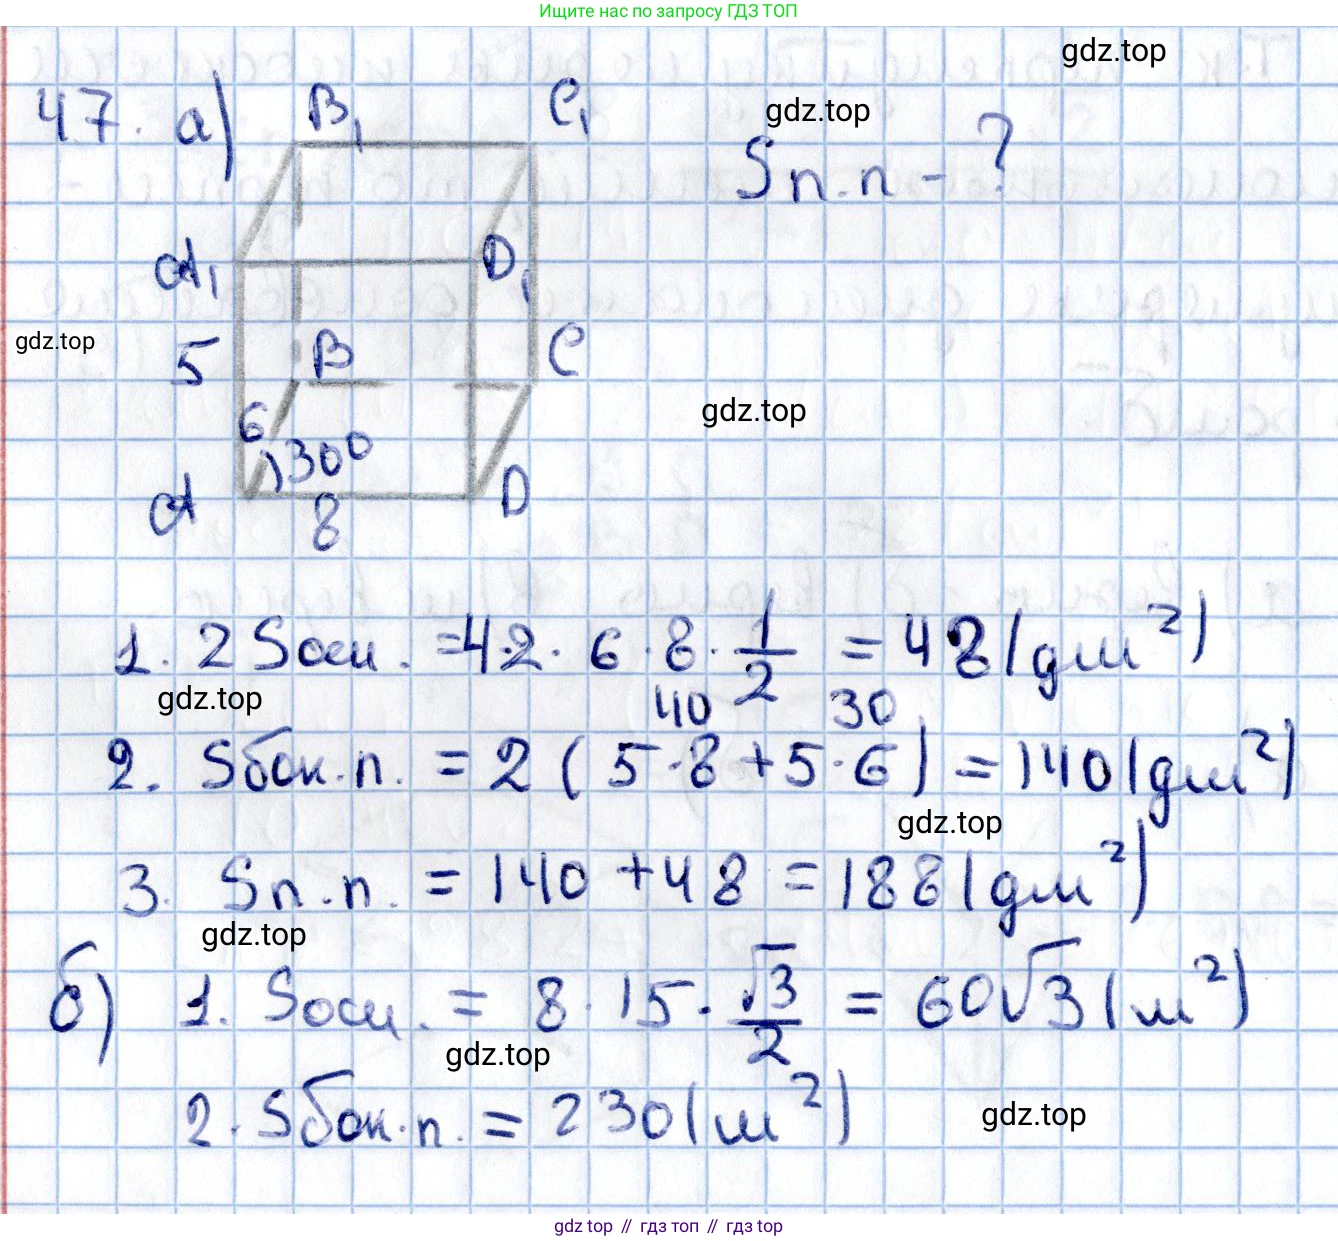 Ищите нас по запросу ГДЗ ТОП
gdz.top
47. а) B₁ C₁
gdz.top
Sп.п - ?
A₁ D₁
gdz.top
5 B C
6
gdz.top
30⁰
A 8 D
1. 2 Sосн. = 4·2 · 6 · 8 · 1/2 = 48 (дм²)
gdz.top
40 30
2. Sбок.п. = 2 ( 5·8 + 5·6 ) = 140 (дм²)
gdz.top
3. Sп.п. = 140 + 48 = 188 (дм²)
gdz.top
б) 1. Sосн. = 8 · 15 · √3/2 = 60√3 (м²)
gdz.top
2. Sбок.п. = 230 (м²)
gdz.top
gdz top // гдз топ // гдз top